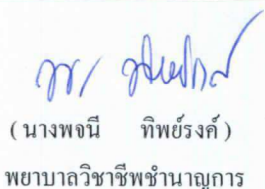 ( นางพจนี ทิพย์รงค์ )
พยาบาลวิชาชีพชำนาญการ